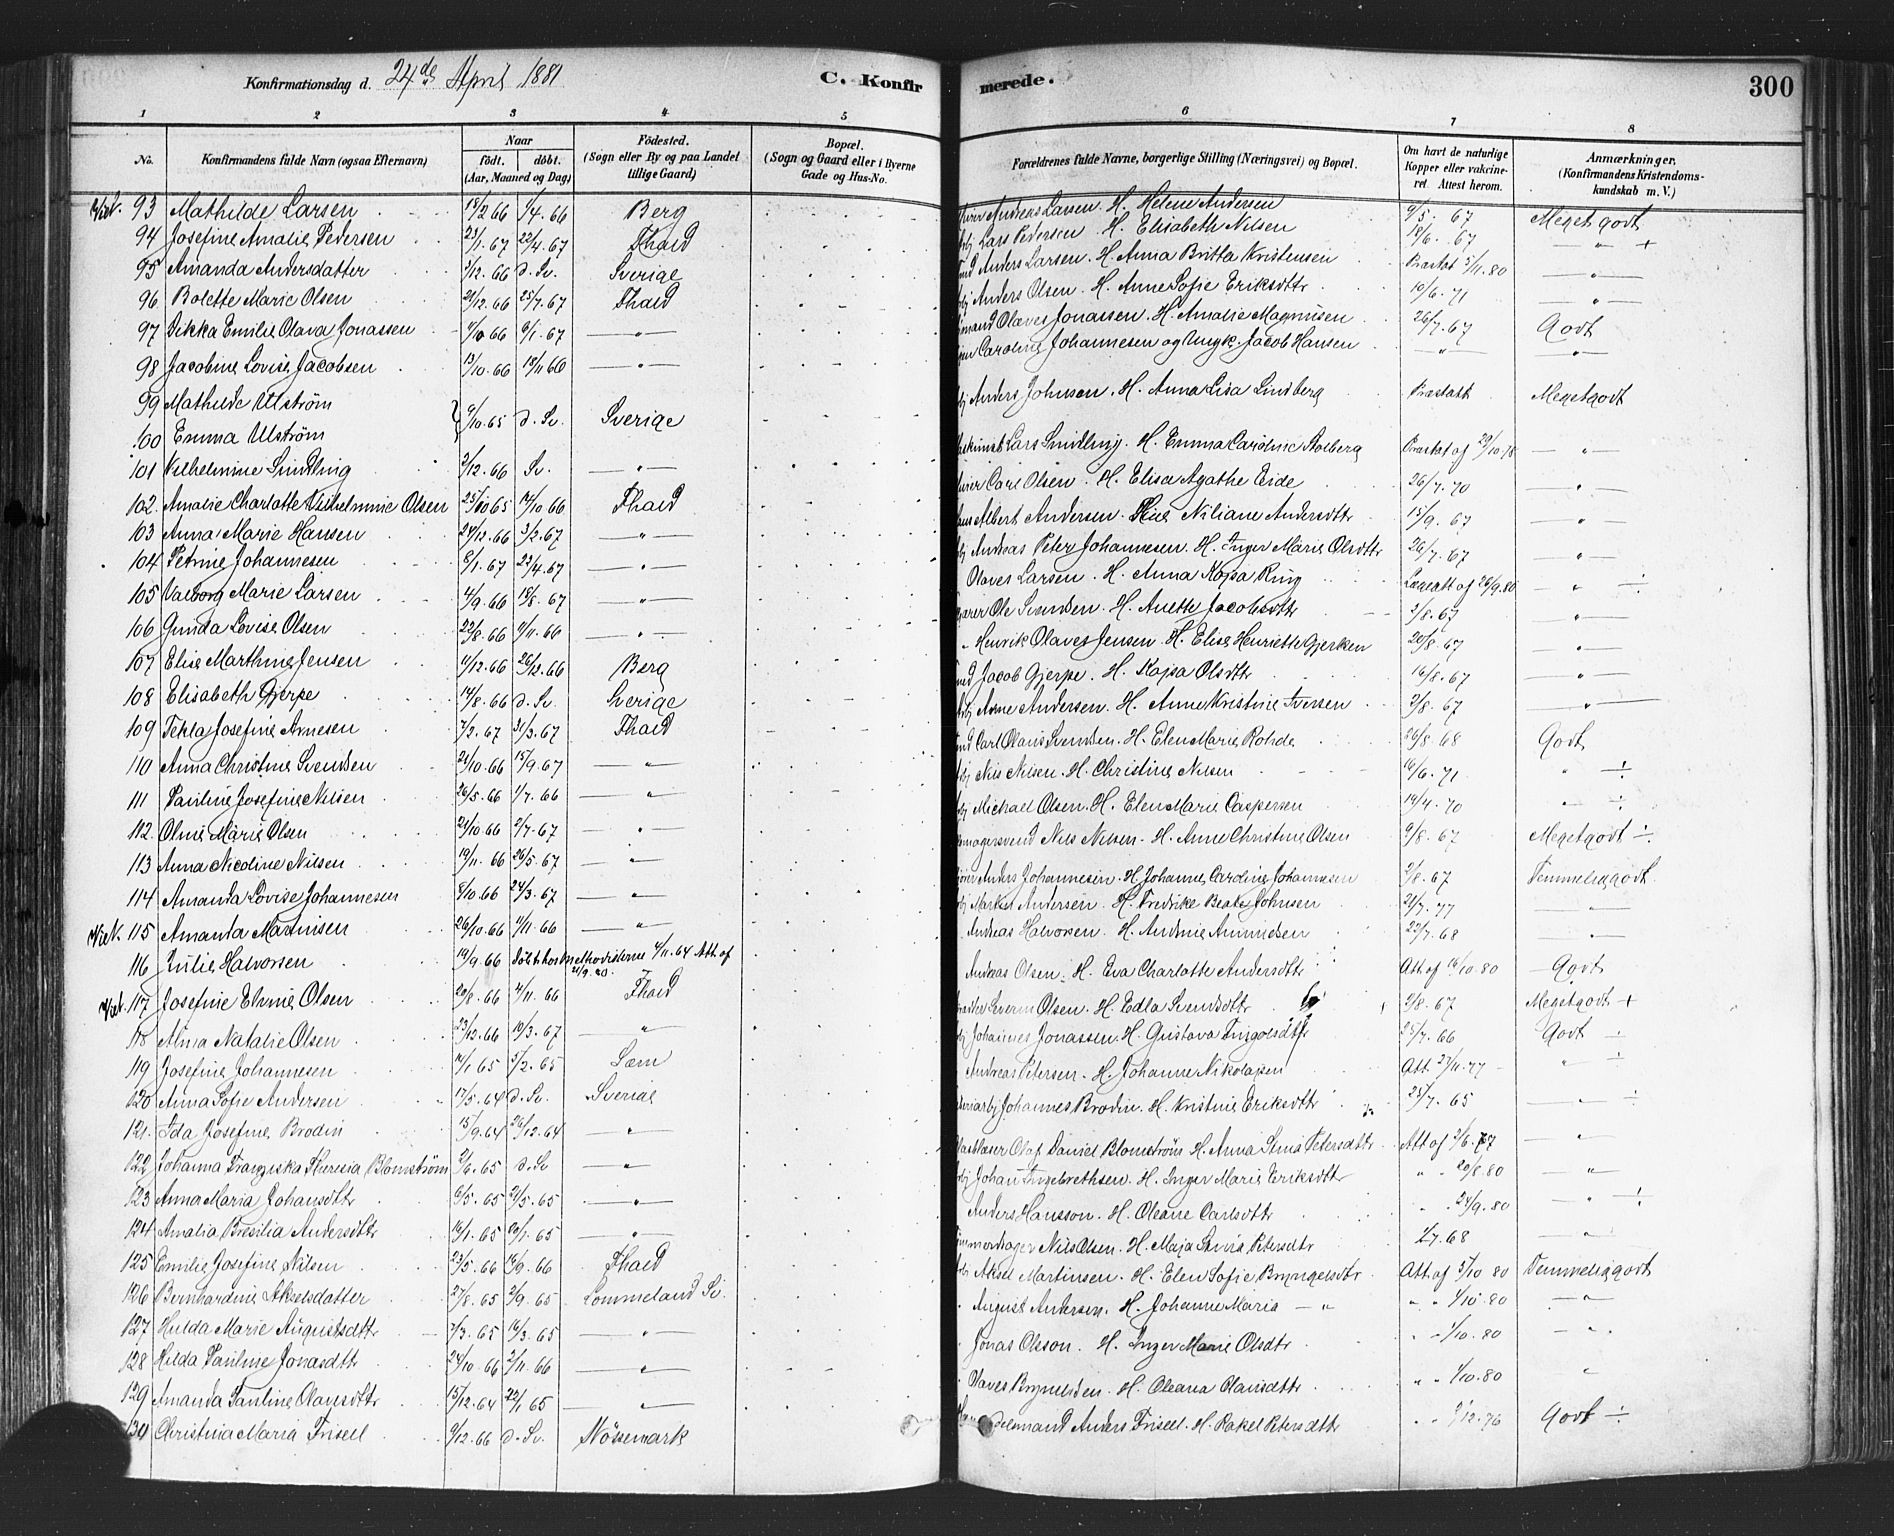 Konfirmationsdag d. 24de April 1881
C. Konfir
merede.
300
1 2 3 4 5 6 7 8
No.
Konfirmandens fulde Navn (ogsaa Efternavn)
Naar
født. døbt.
(Aar, Maaned og Dag)
Fødested.
(Sogn eller By og paa Landet
tillige Gaard)
Bopæl.
(Sogn og Gaard eller i Byerne
Gade og Hus-No.
Forældrenes fulde Navne, borgerlige Stilling (Næringsvei) og Bopæl.
Om havt de naturlige
Kopper eller vakcine-
ret. Attest herom.
Anmærkninger.
(Konfirmandens Kristendoms-
kundskab m. V.)
93 Mathilde Larsen 18/2 66 1/4. 66 Berg Andreas Larsen. H. Helene Andersen 9/5. 67 Meget godt
94 Josefine Amalie Pedersen 23/1. 67 22/4. 67 Fhald Lars Pedersen. H. Elisabeth Nilsen 18/6. 67 — " — +
95 Amanda Andersdatter 1/12. 66 d. Sv. Sverige Anders Larsen. H. Anna Britta Kristensen Præstat 5/11. 80 — " —
96 Bolette Marie Olsen 21/12. 66 25/7. 67 Fhald Anders Olsen. H. Anne Sofie Eriksdttr 10/6. 71 — " —
97 Dikka Emilie Olava Jonassen 1/10 66 6/1. 67 — " — Olaves Jonassen. H. Amalie Magnusen 26/7. 67 Godt
98 Jacobine Lovise Jacobsen 13/10. 66 18/11 66 — " — Caroline Johannesen og Ungk. Jacob Hansen — " — — " —
99 Mathilde Ulstrøm
100 Emma Ulstrøm 6/10. 65 d. Sv. Sverige Anders Johnsen. H. Anna Lisa Lindberg Præstatt Meget godt
101 Vilhelmine Smidling 2/12. 66 Sv. — " — Lars Smidling. H. Emma Caroline Stolberg Præstat af 29/10. 78 — " —
102. Amalie Charlotte Vilhelmine Olsen 25/10 65 14/10. 66 Fhald Carl Olsen. H. Elise Agathe Eide 26/7. 70 "
103 Anna Marie Hansen 24/12. 66 3/2. 67 — " — Albert Andersen. Niliane Andersdttr 15/9. 67 "
104 Petrine Johannesen 8/1. 67 22/4. 67 — " — Andreas Peter Johannesen. H. Inger Marie Olsdttr 26/7. 67 "
105 Valborg Marie Larsen 4/9. 66 18/8. 67 — " — Olaves Larsen. H. Anna Kajsa Ring Lægeatt af 26/9. 80 — " — ÷
106 Gunda Lovise Olsen 22/8. 66 11/11. 66 — " — Ole Svendsen. H. Anette Jacobsdttr 3/8. 67 — " —
107 Elise Marthine Jensen 11/12. 66 26/12. 66 Berg Henrik Olaves Jensen. H. Elise Henriette Gjerken 20/8. 67 — " —
108 Elisabeth Gjerpe 14/8. 66 d. Sv. Sverige Jacob Gjerpe. H. Kajsa Olsdttr 16/8. 67 — " —
109 Tekla Josefine Arnesen 7/2. 67 31/3. 67 Fhald Arne Andersen. H. Anne Kristine Iversen 2/8. 67 — " —
110 Anna Christine Svendsen 21/10. 66 15/9. 67 — " — Carl Olaus Svendsen. H. Elen Marie Rohde 26/8. 68 Godt
111 Pauline Josefine Nilsen 26/5. 66 1/7. 66 — " — Nils Nilsen. H. Christine Nilsen 16/6. 71 " ÷
112. Oline Marie Olsen 21/10 66 2/7. 67 — " — Michael Olsen. H. Elen Marie Caspersen 19/4. 70 " ÷
113 Anna Nicoline Nilsen 19/11. 66 26/5. 67 — " — Nils Nilsen. H. Anne Christine Olsen 9/8. 67 Meget godt ÷
114 Amanda Lovise Johannesen 8/10. 66 24/3. 67 — " — Anders Johannesen. H. Johanne Caroline Johannesen 2/8. 67 Temmelig godt
115 Amanda Martinsen 26/10. 66 11/11. 66 — " — Andersen. H. Fredrike Beate Johnsen 21/7. 77 — " —
116 Julie Halvorsen 19/9. 66 Døbt hos Methodisterne 4/11. 64 Att. af 21/9. 80. Andreas Halvorsen. H. Andrine Amundsen 27/7. 68 — " —
117 Josefine Elvine Olsen 20/8. 66 4/11. 66 Fhald Andreas Olsen. H. Eva Charlotte Andersdttr Att af 16/10. 80 Godt
118 Alma Natalie Olsen 23/12. 66 10/3. 67 — " — Severin Olsen. H. Edla Svendsdttr 2/8. 67 Meget godt +
119 Josefine Johannesen 14/1. 65 5/2. 65 Sæm Johannes Jonassen. H. Gustava Ingolsdttr 25/7. 66 Godt ÷
120 Anna Sofie Andersen 17/5. 64 d. Sv. Sverige Andreas Petersen. H. Johanne Nikolajsen Att. 27/11. 77 " ÷
121. Ida Josefine Brodin 15/9. 64 26/12. 64 — " — Johannes Brodin. H. Kristine Eriksdttr 23/7. 65 — " — ÷
122 Johanna Franziska Theresia Blomstrøm 2/6. 65 d. Sv — " — Olaf Daniel Blomstrøm H. Anna Stina Petersdttr Att af 2/6. 77 — " —
123 Anna Maria Johansdttr 6/5. 65 21/5. 65 — " — Johan Ingebrethsen. H. Inger Marie Eriksdttr " " 20/8. 80 — " —
124 Amalia Bresilia Andersdttr 16/1. 65 20/1. 65 — " — Anders Hansson. H. Oleane Carlsdttr " " 24/9. 80 — " — ÷
125 Emilie Josefine Nilsen 23/5. 66 16/9. 66 Fhald Nils Olsen. H. Maja Petersdttr 1/7. 68 — " —
126 Bernhardine Akselsdatter 27/8. 65 2/9. 65 Lommeland Sv. Aksel Martinsen. H. Elen Sofie Bryngelsdttr. Att af 5/10 80 Temmelig godt
127 Hulda Marie Augustsdttr 2/3. 65 16/3. 65 — " — August Andersen. H. Johanne Maria — " " " 1/10. 80 — " —
128 Hilda Pauline Jonasdttr 24/10. 66 2/11. 66 — " — Jonas Olsson. H. Inger Marie Olsdtr " " 1/10. 80 — " —
129 Amanda Pauline Olausdttr 15/12. 64 22/1. 65 — " — Olaves Brynelsden. H. Oleana Olausdttr " " 1/10. 80 "
130 Christina Maria Frisell 9/12. 66 d. Sv. Nössemark Anders Frisell. H. Rakel Petersdttr " " 9/12. 76 Godt ÷